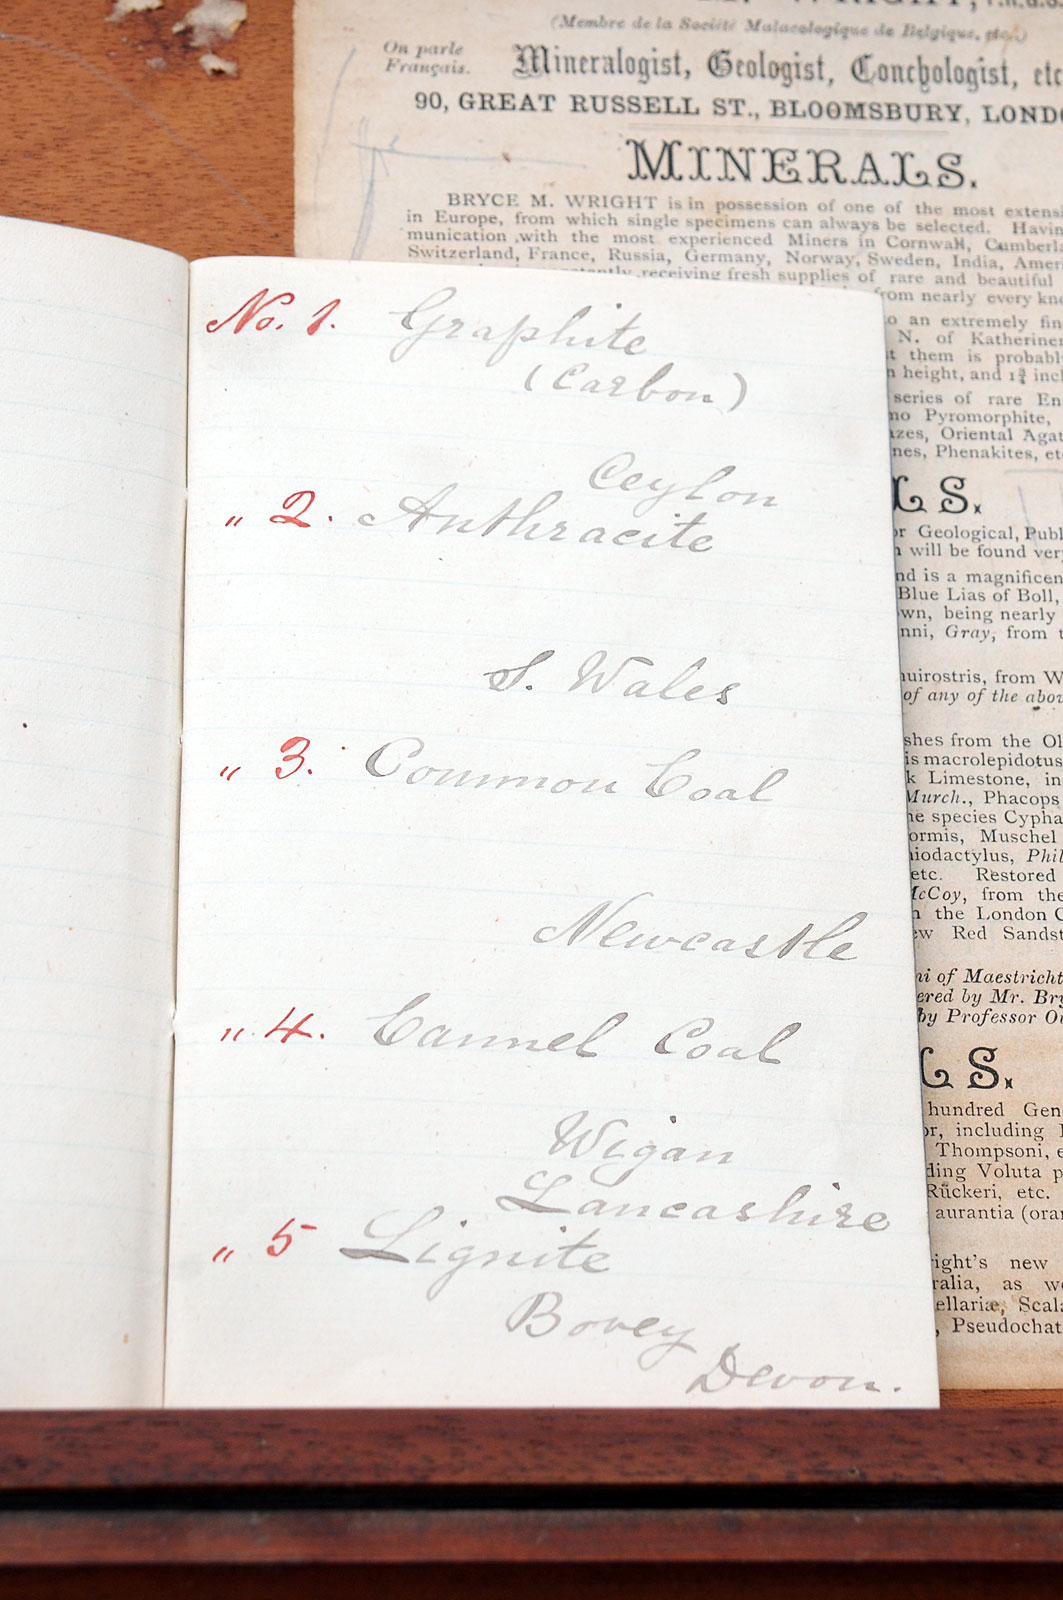 M. WRIGHT, F.R.G.S.
(Membre de la Société Malacologique de Belgique, etc.)
On parle
Français.
Mineralogist, Geologist, Conchologist, etc
90, GREAT RUSSELL ST., BLOOMSBURY, LONDO
MINERALS.
BRYCE M. WRIGHT is in possession of one of the most extensi
in Europe, from which single specimens can always be selected. Havin
munication with the most experienced Miners in Cornwall, Cumberl
Switzerland, France, Russia, Germany, Norway, Sweden, India, Amer
constantly receiving fresh supplies of rare and beautiful
from nearly every kno
o an extremely fin
N. of Katheriner
t them is probabl
n height, and 1¾ incl
series of rare En
no Pyromorphite,
azes, Oriental Agat
nes, Phenakites, et
LS.
or Geological, Publ
n will be found ver
nd is a magnificen
Blue Lias of Boll,
own, being nearly
nni, Gray, from t
nuirostris, from W
of any of the abov
shes from the Ol
is macrolepidotus
k Limestone, in
Murch., Phacops
he species Cypha
ormis, Muschel
hiodactylus, Phil
etc. Restored
McCoy, from the
n the London C
ew Red Sandst
ni of Maestricht
ered by Mr. Bry
by Professor Ow
LS.
hundred Gen
or, including
Thompsoni, e
ding Voluta p
Rückeri, etc.
aurantia (oran
right's new
ralia, as we
ellariæ, Scala
, Pseudochat
No. 1. Graphite
(Carbon)
Ceylon
" 2. Anthracite
S. Wales
" 3. Common Coal
Newcastle
" 4. Cannel Coal
Wigan
Lancashire
" 5 Lignite
Bovey
Devon.